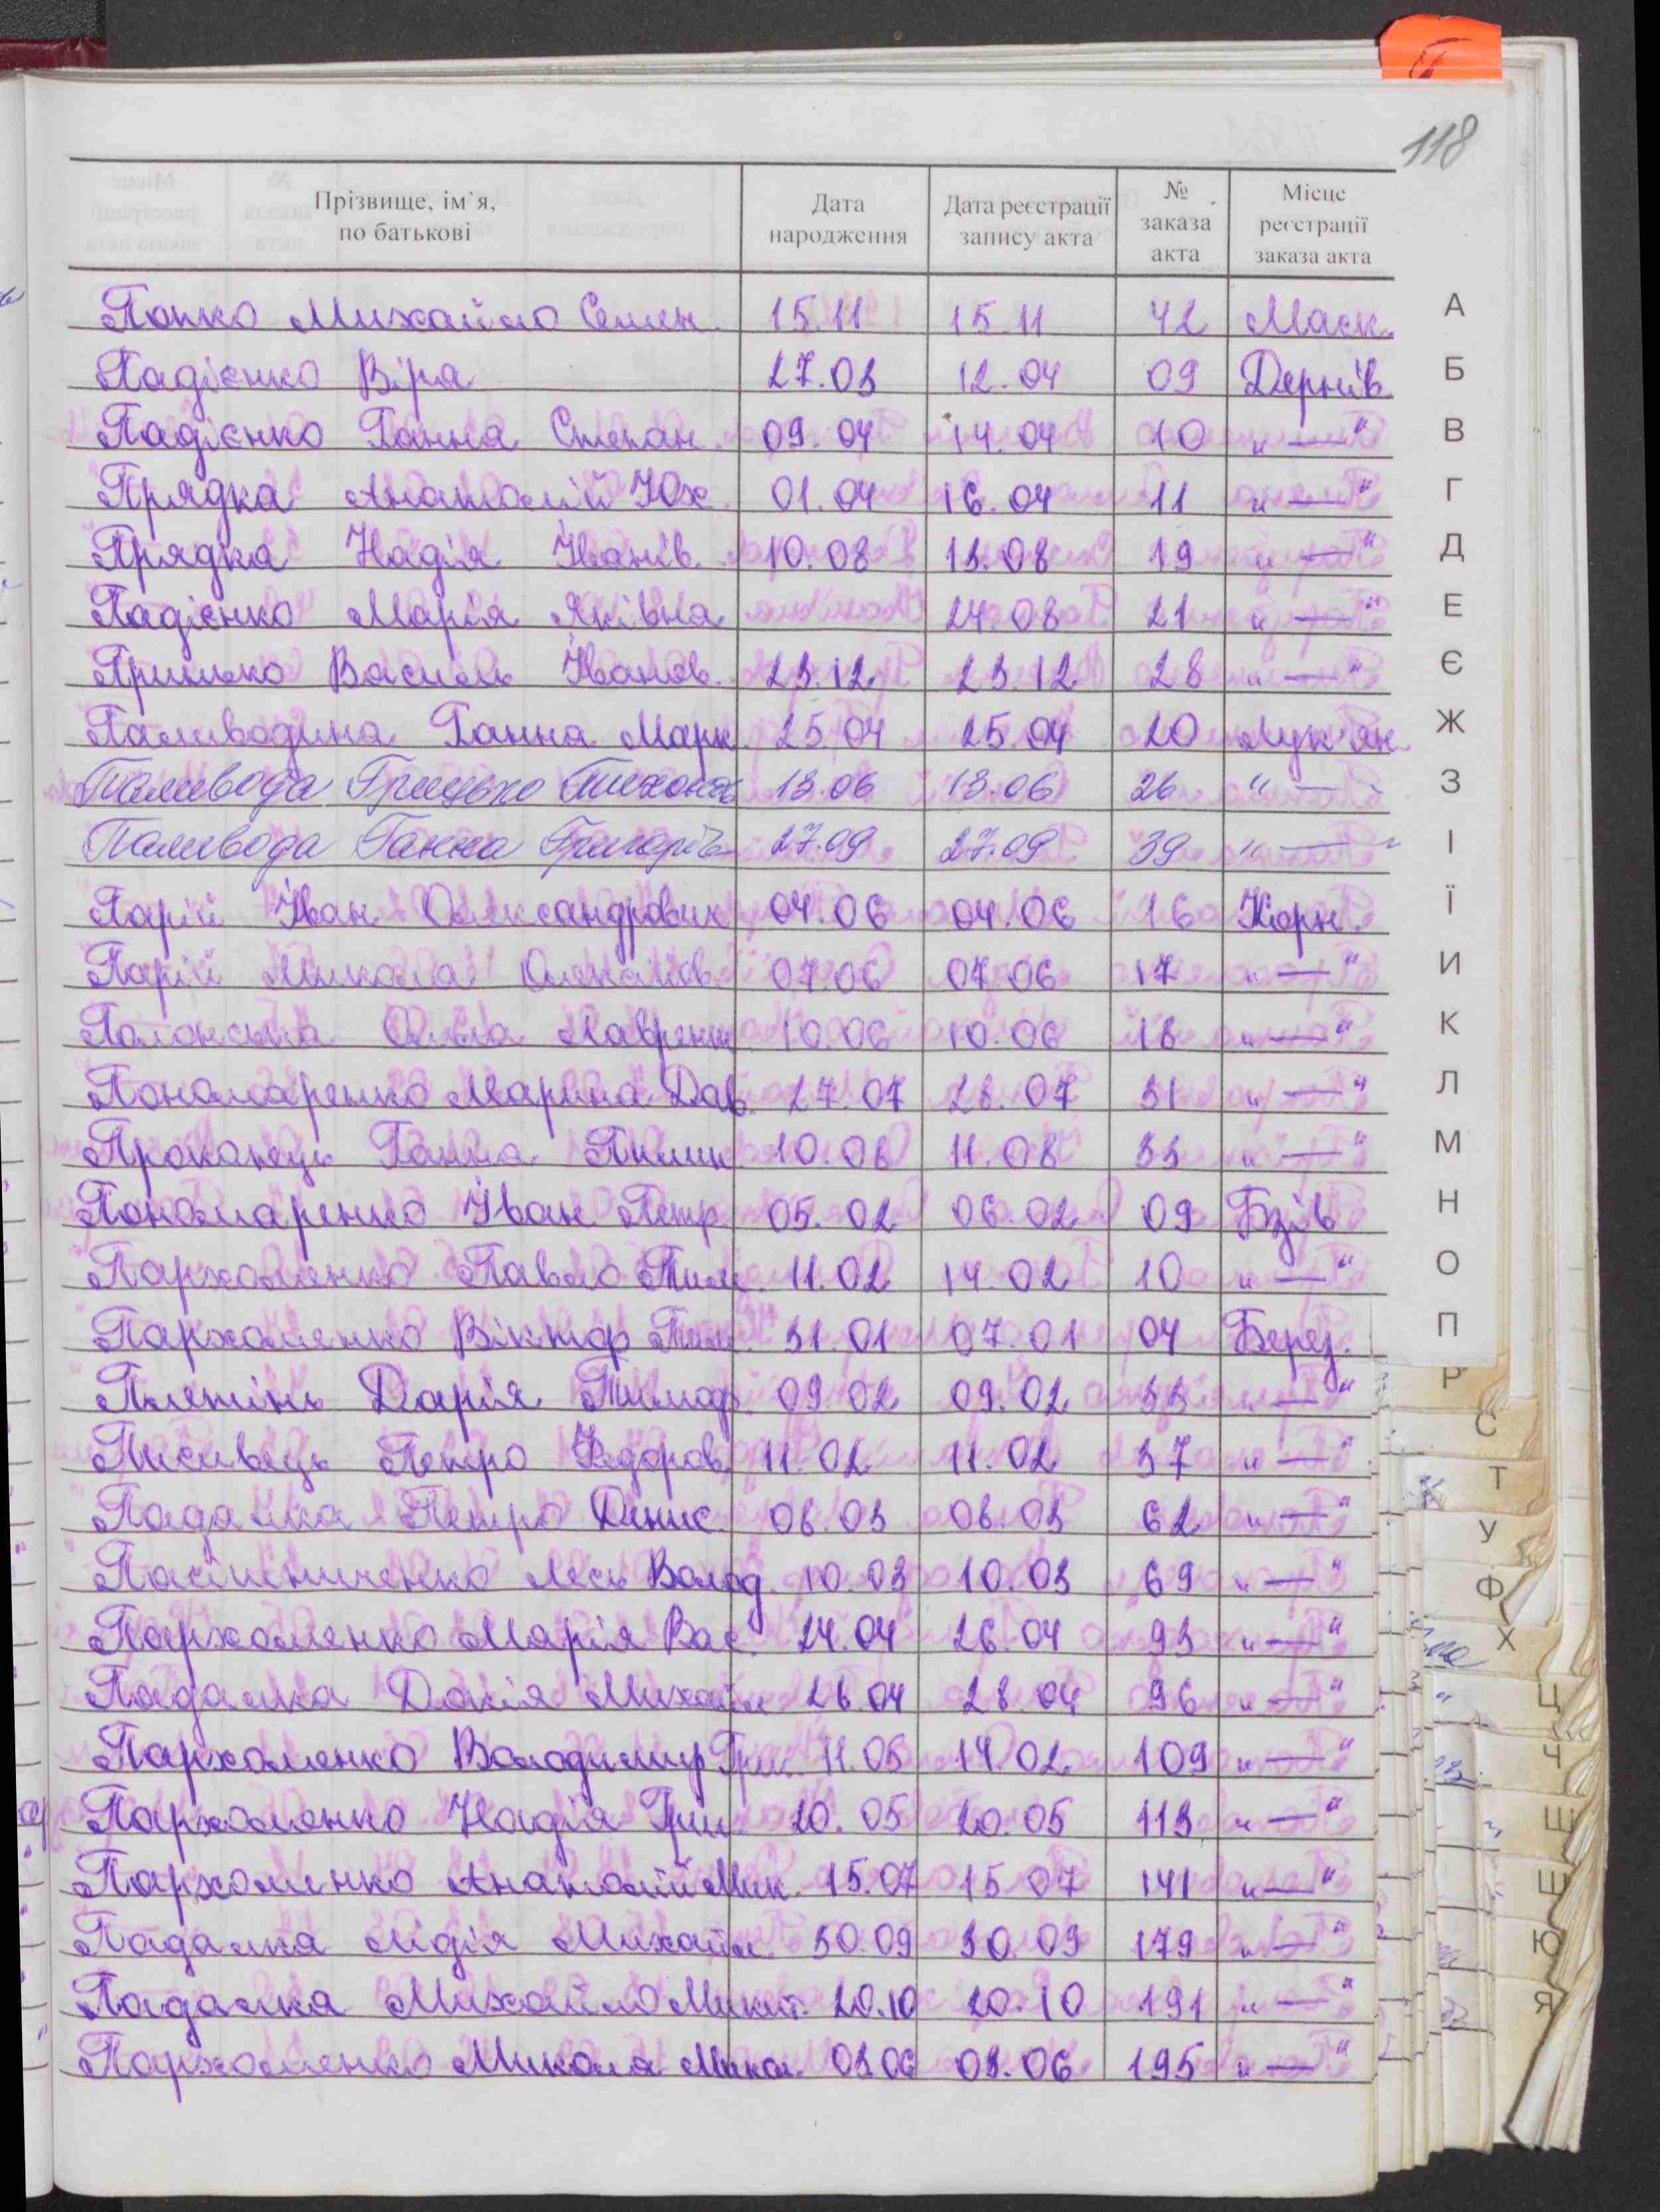 118
Прізвище, ім`я, по батькові | Дата народження | Дата реєстрації запису акта | № заказа акта | Місце реєстрації заказа акта
Попко Михайло Семен. 15.11 15.11 42 Маск.
Падієнко Віра 27.03 12.04 09 Дернів
Падієнко Ганна Степан. 09.04 14.04 10 „ — “
Прядка Анатолій Юх. 01.04 16.04 11 „ — “
Прядка Надія Іванів. 10.08 13.08 19 „ — “
Падієнко Марія Яківна 24.08 21 „ — “
Василь Іванов. 23.12 23.12 28 „ — “
Паливодина Ганна Марк. 25.04 25.04 20 Лук'ян.
Паливода Грицько Тихонов 13.06 13.06 26 “ —
Паливода Ганна Григорів 27.09 27.09 39 “ — “
Парій Іван Олександрович 04.06 04.06 16 Корн.
Парій Микола 07.06 07.06 17 „ — “
Полонська Ольга Лаврент. 10.06 10.06 18 „ — “
Пономаренко Марина Дав. 27.07 28.07 31 „ — “
Ганна 10.08 11.08 33 „ — “
Пономаренко Іван Петр. 05.02 06.02 09 Бзів
Пархоменко Павло Тим. 11.02 14.02 10 „ — “
Пархоменко Віктор Тим. 31.01 07.01 04 Берез.
Плетінь Дарія Тимоф. 09.02 09.02 33 „ — “
Писивець Петро Федоров. 11.02 11.02 37 „ — “
Падалка Петро Денис. 08.03 08.03 62 „ — “
Лесь Волод. 10.03 10.03 69 „ — “
Пархоменко Марія Вас. 24.04 26.04 93 „ — “
Падалка Докія Михайл. 28.04 28.04 96 „ — “
Пархоменко Володимир Григ. 11.05 14.02 109 „ — “
Пархоменко Надія Григ. 20.05 20.05 113 „ — “
Пархоменко Анатолій Мик. 15.07 15.07 141 „ — “
Падалка Лідія Михайл. 30.09 30.09 179 „ — “
Падалка Михайло Микит. 20.10 20.10 191 „ — “
Пархоменко Микола Микол. 03.06 03.06 195 „ — “
А
Б
В
Г
Д
Е
Є
Ж
З
І
Ї
И
К
Л
М
Н
О
П
Р
С
Т
У
Ф
Х
Ц
Ч
Ш
Щ
Ю
Я